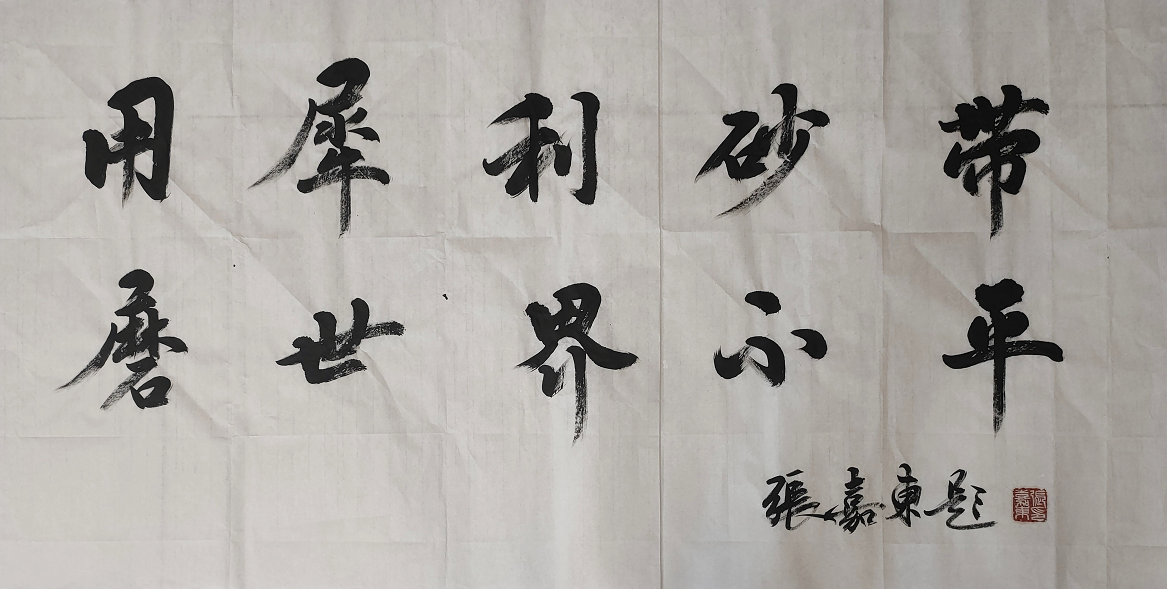 用犀利砂带
磨世界不平
張嘉東题